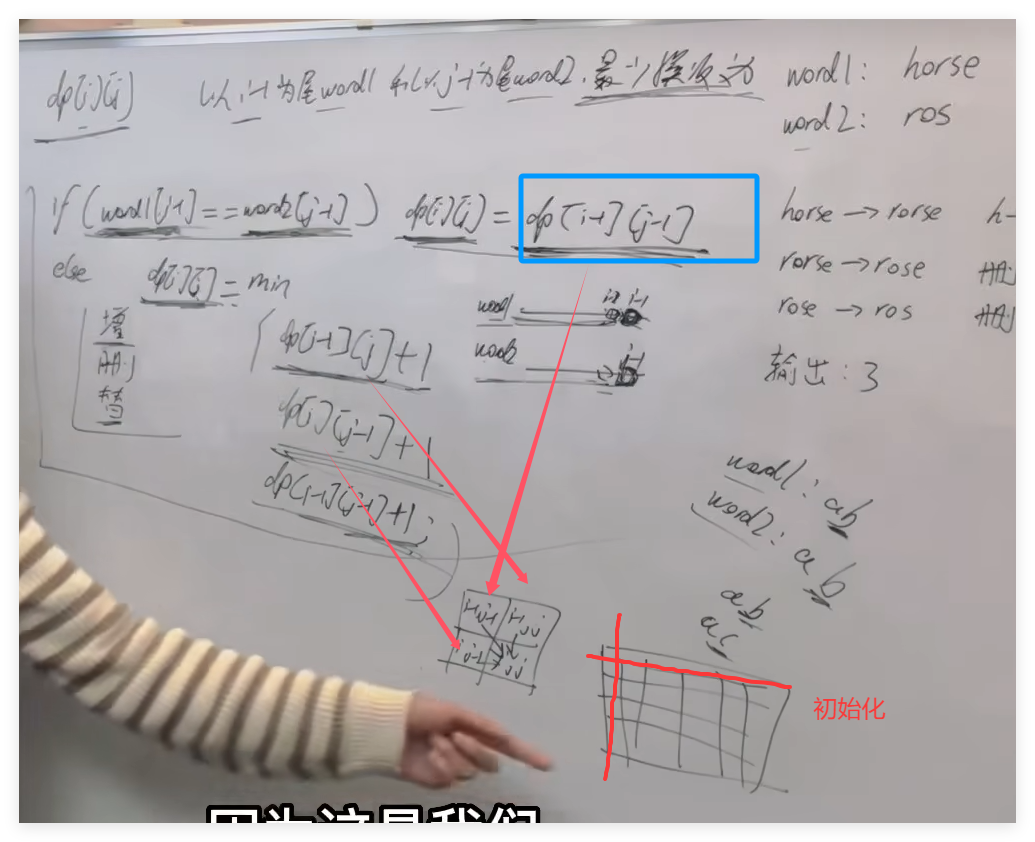 dp[i][j] 以 i-1 为尾 word1 和以 j-1 为尾 word2, 最少操作次数为
word1: horse
word2: ros
if (word1[i-1] == word2[j-1]) dp[i][j] = dp[i-1][j-1]
else dp[i][j] = min
增
删
替
dp[i-1][j]+1
dp[i][j-1]+1
dp[i-1][j-1]+1;
word1 i-2 i-1
word2 j-1
horse → rorse h-
rorse → rose 删
rose → ros 删
输出: 3
word1: ab
word2: ab
ab
ac
i-1,j-1 i-1,j
i,j-1 i,j
初始化
因为这是我们